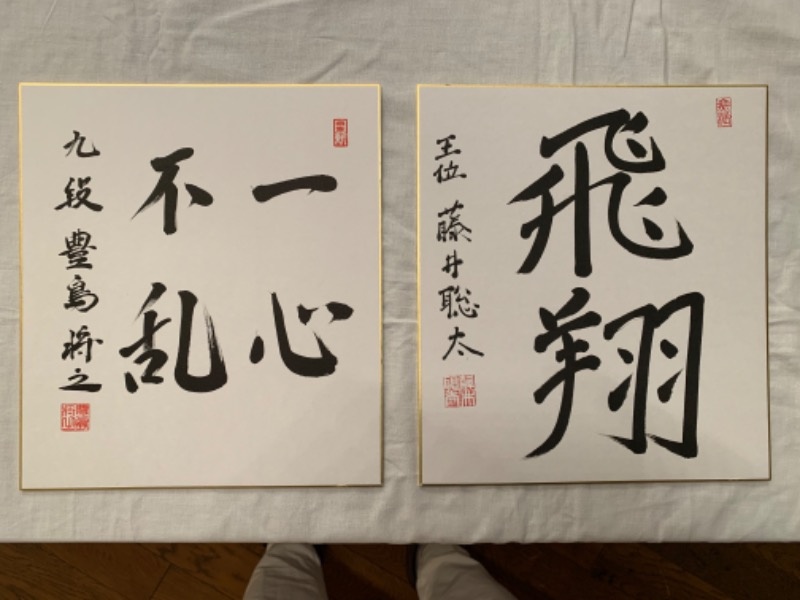 飛翔
王位 藤井聡太
一心
不乱
九段 豊島将之